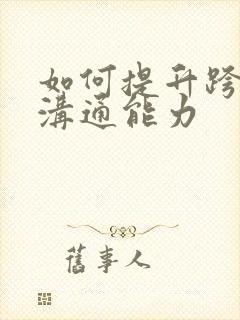 如何提升跨
溝通能力
舊事人